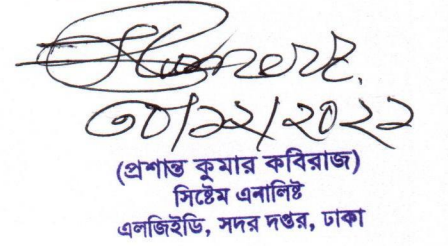 ৩০/১২/২০২২
(প্রশান্ত কুমার কবিরাজ)
সিষ্টেম এনালিষ্ট
এলজিইডি, সদর দপ্তর, ঢাকা